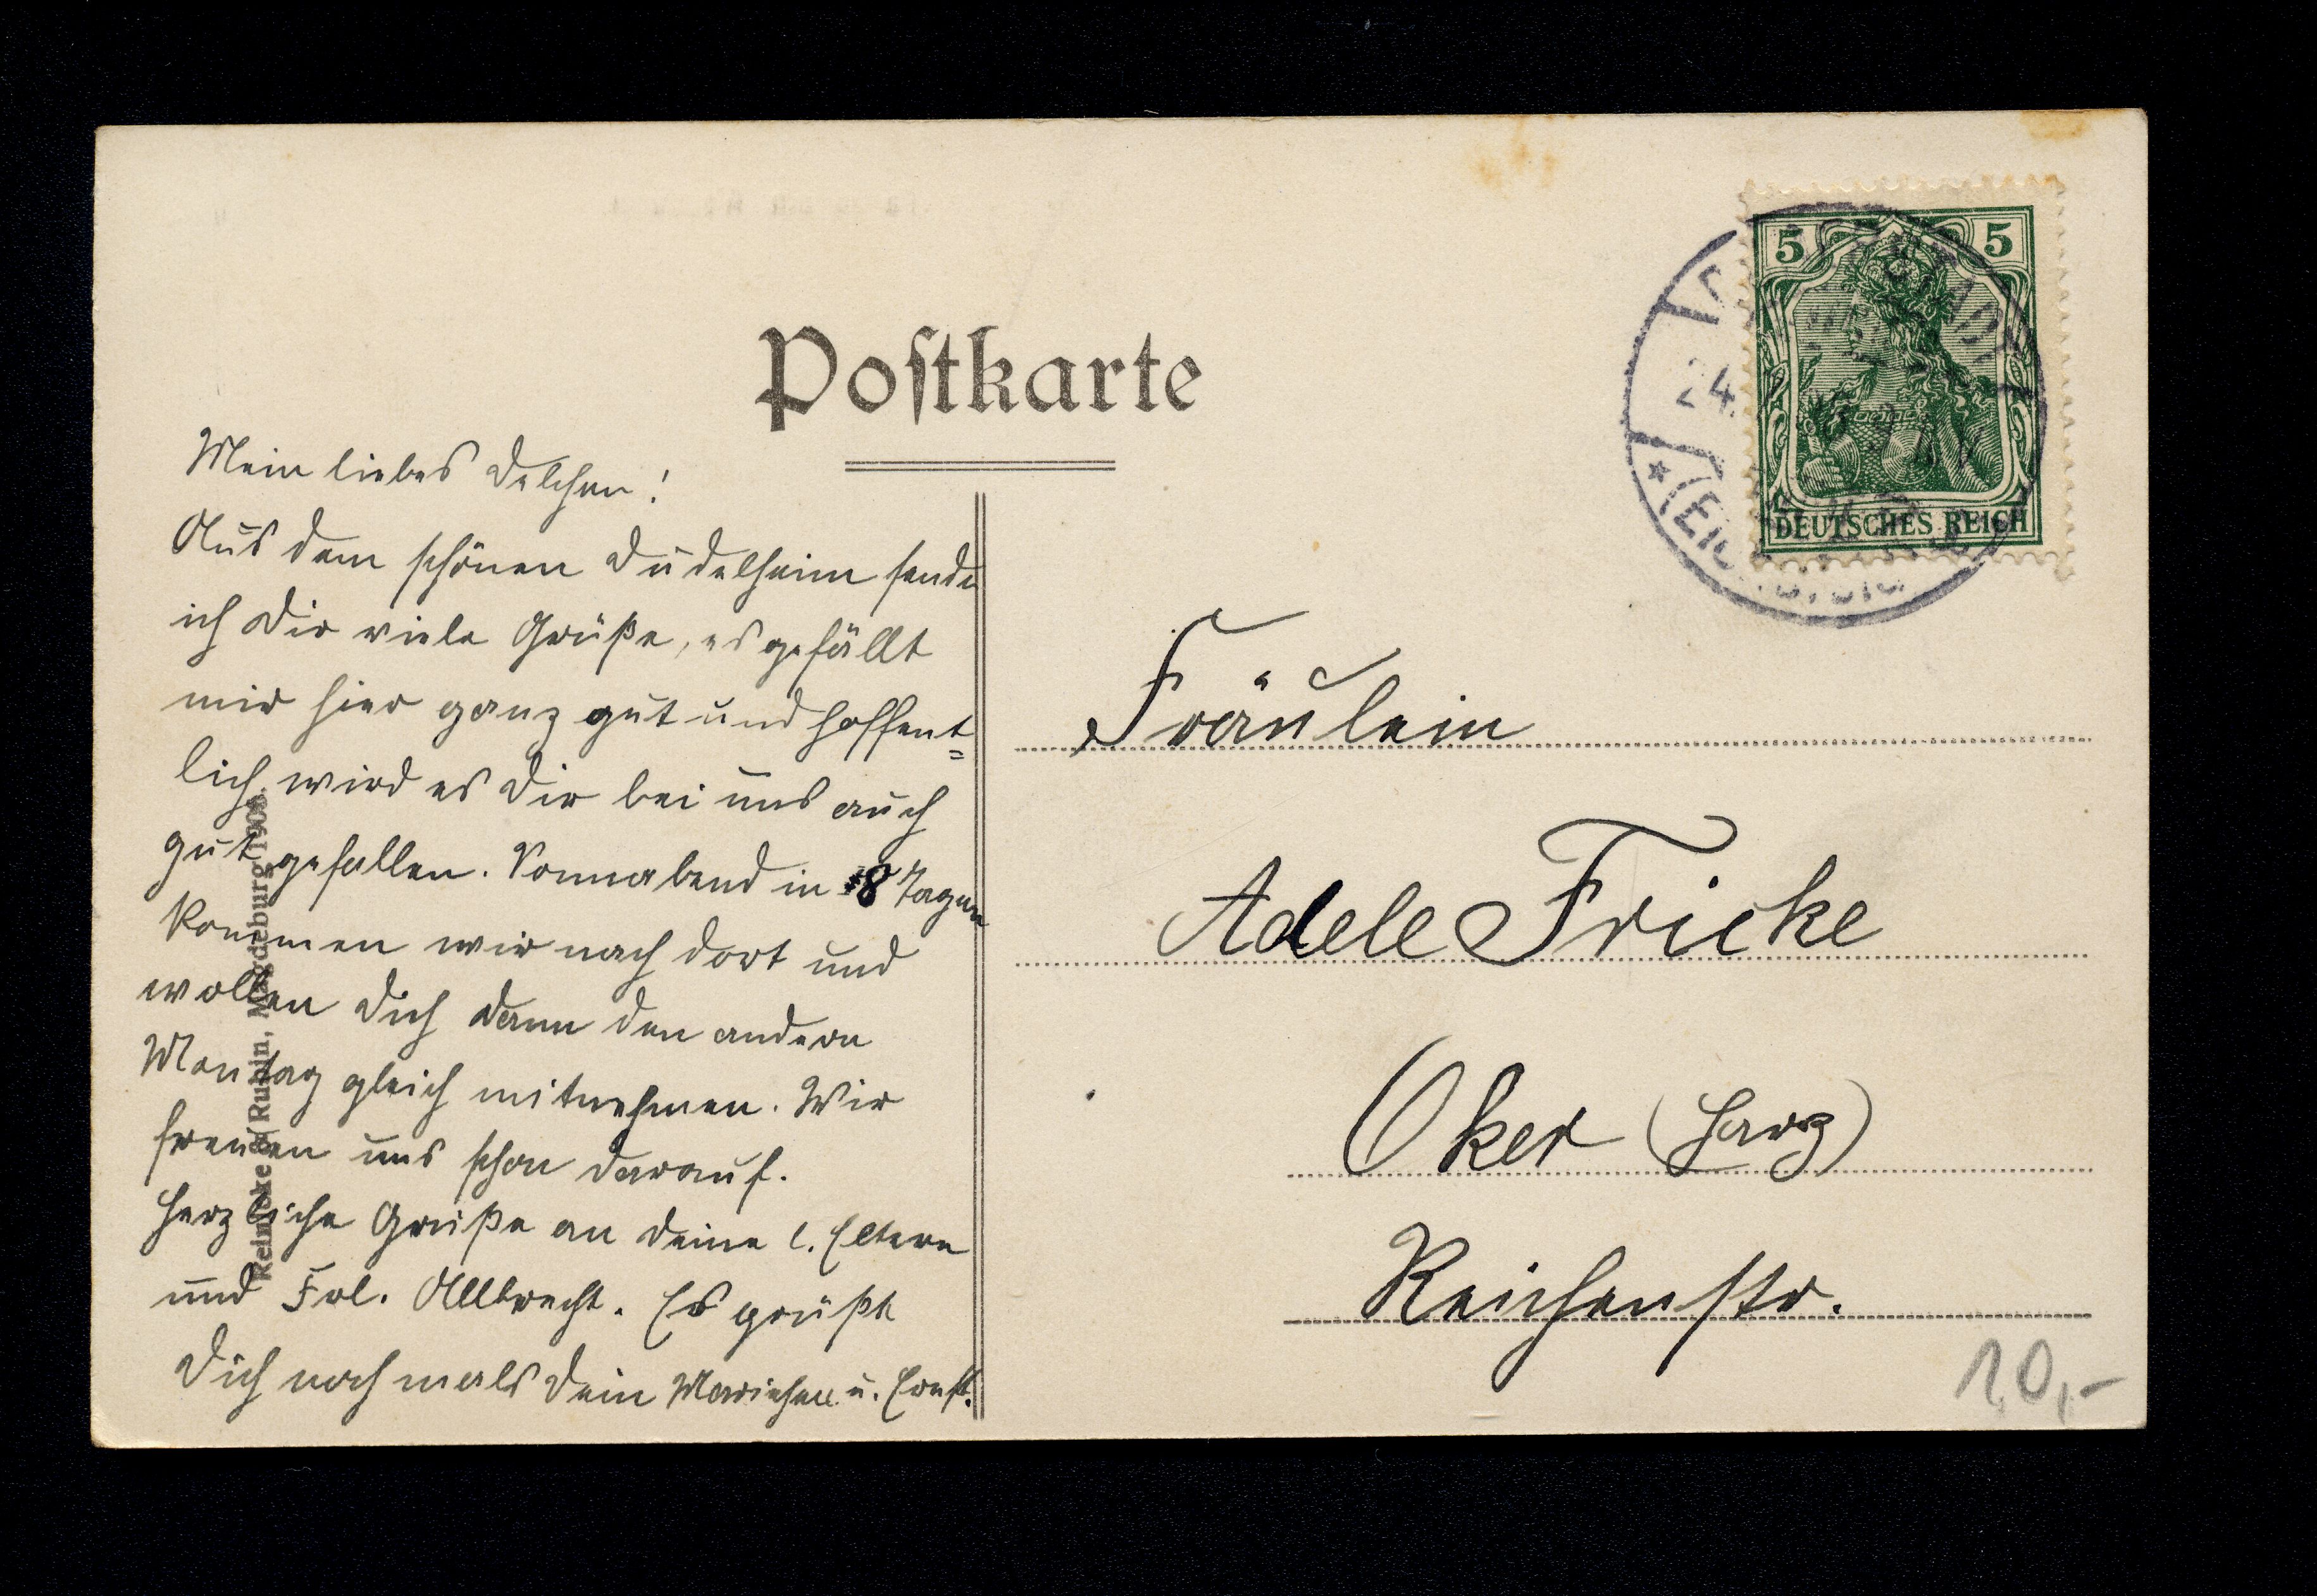 Postkarte
Mein liebes Delchen!
Aus dem schönen Dudelheim sende
ich Dir viele Grüße, es gefällt
mir hier ganz gut und hoffent=
lich wird es Dir bei uns auch
gut gefallen. Sonnabend in 8 Tagen
kommen wir nach dort und
wollen Dich dann den andern
Montag gleich mitnehmen. Wir
freuen uns schon darauf.
Herzliche Grüße an Deine l. Eltern
und Frl. Allbrecht. Es grüßt
Dich nochmals Dein Mariechen u. Ernst.
Reinicke & Rubin, Magdeburg 190
5 5
DEUTSCHES REICH
24.
Fräulein
Adele Fricke
Oker (Harz)
Reichenstr.
10,-